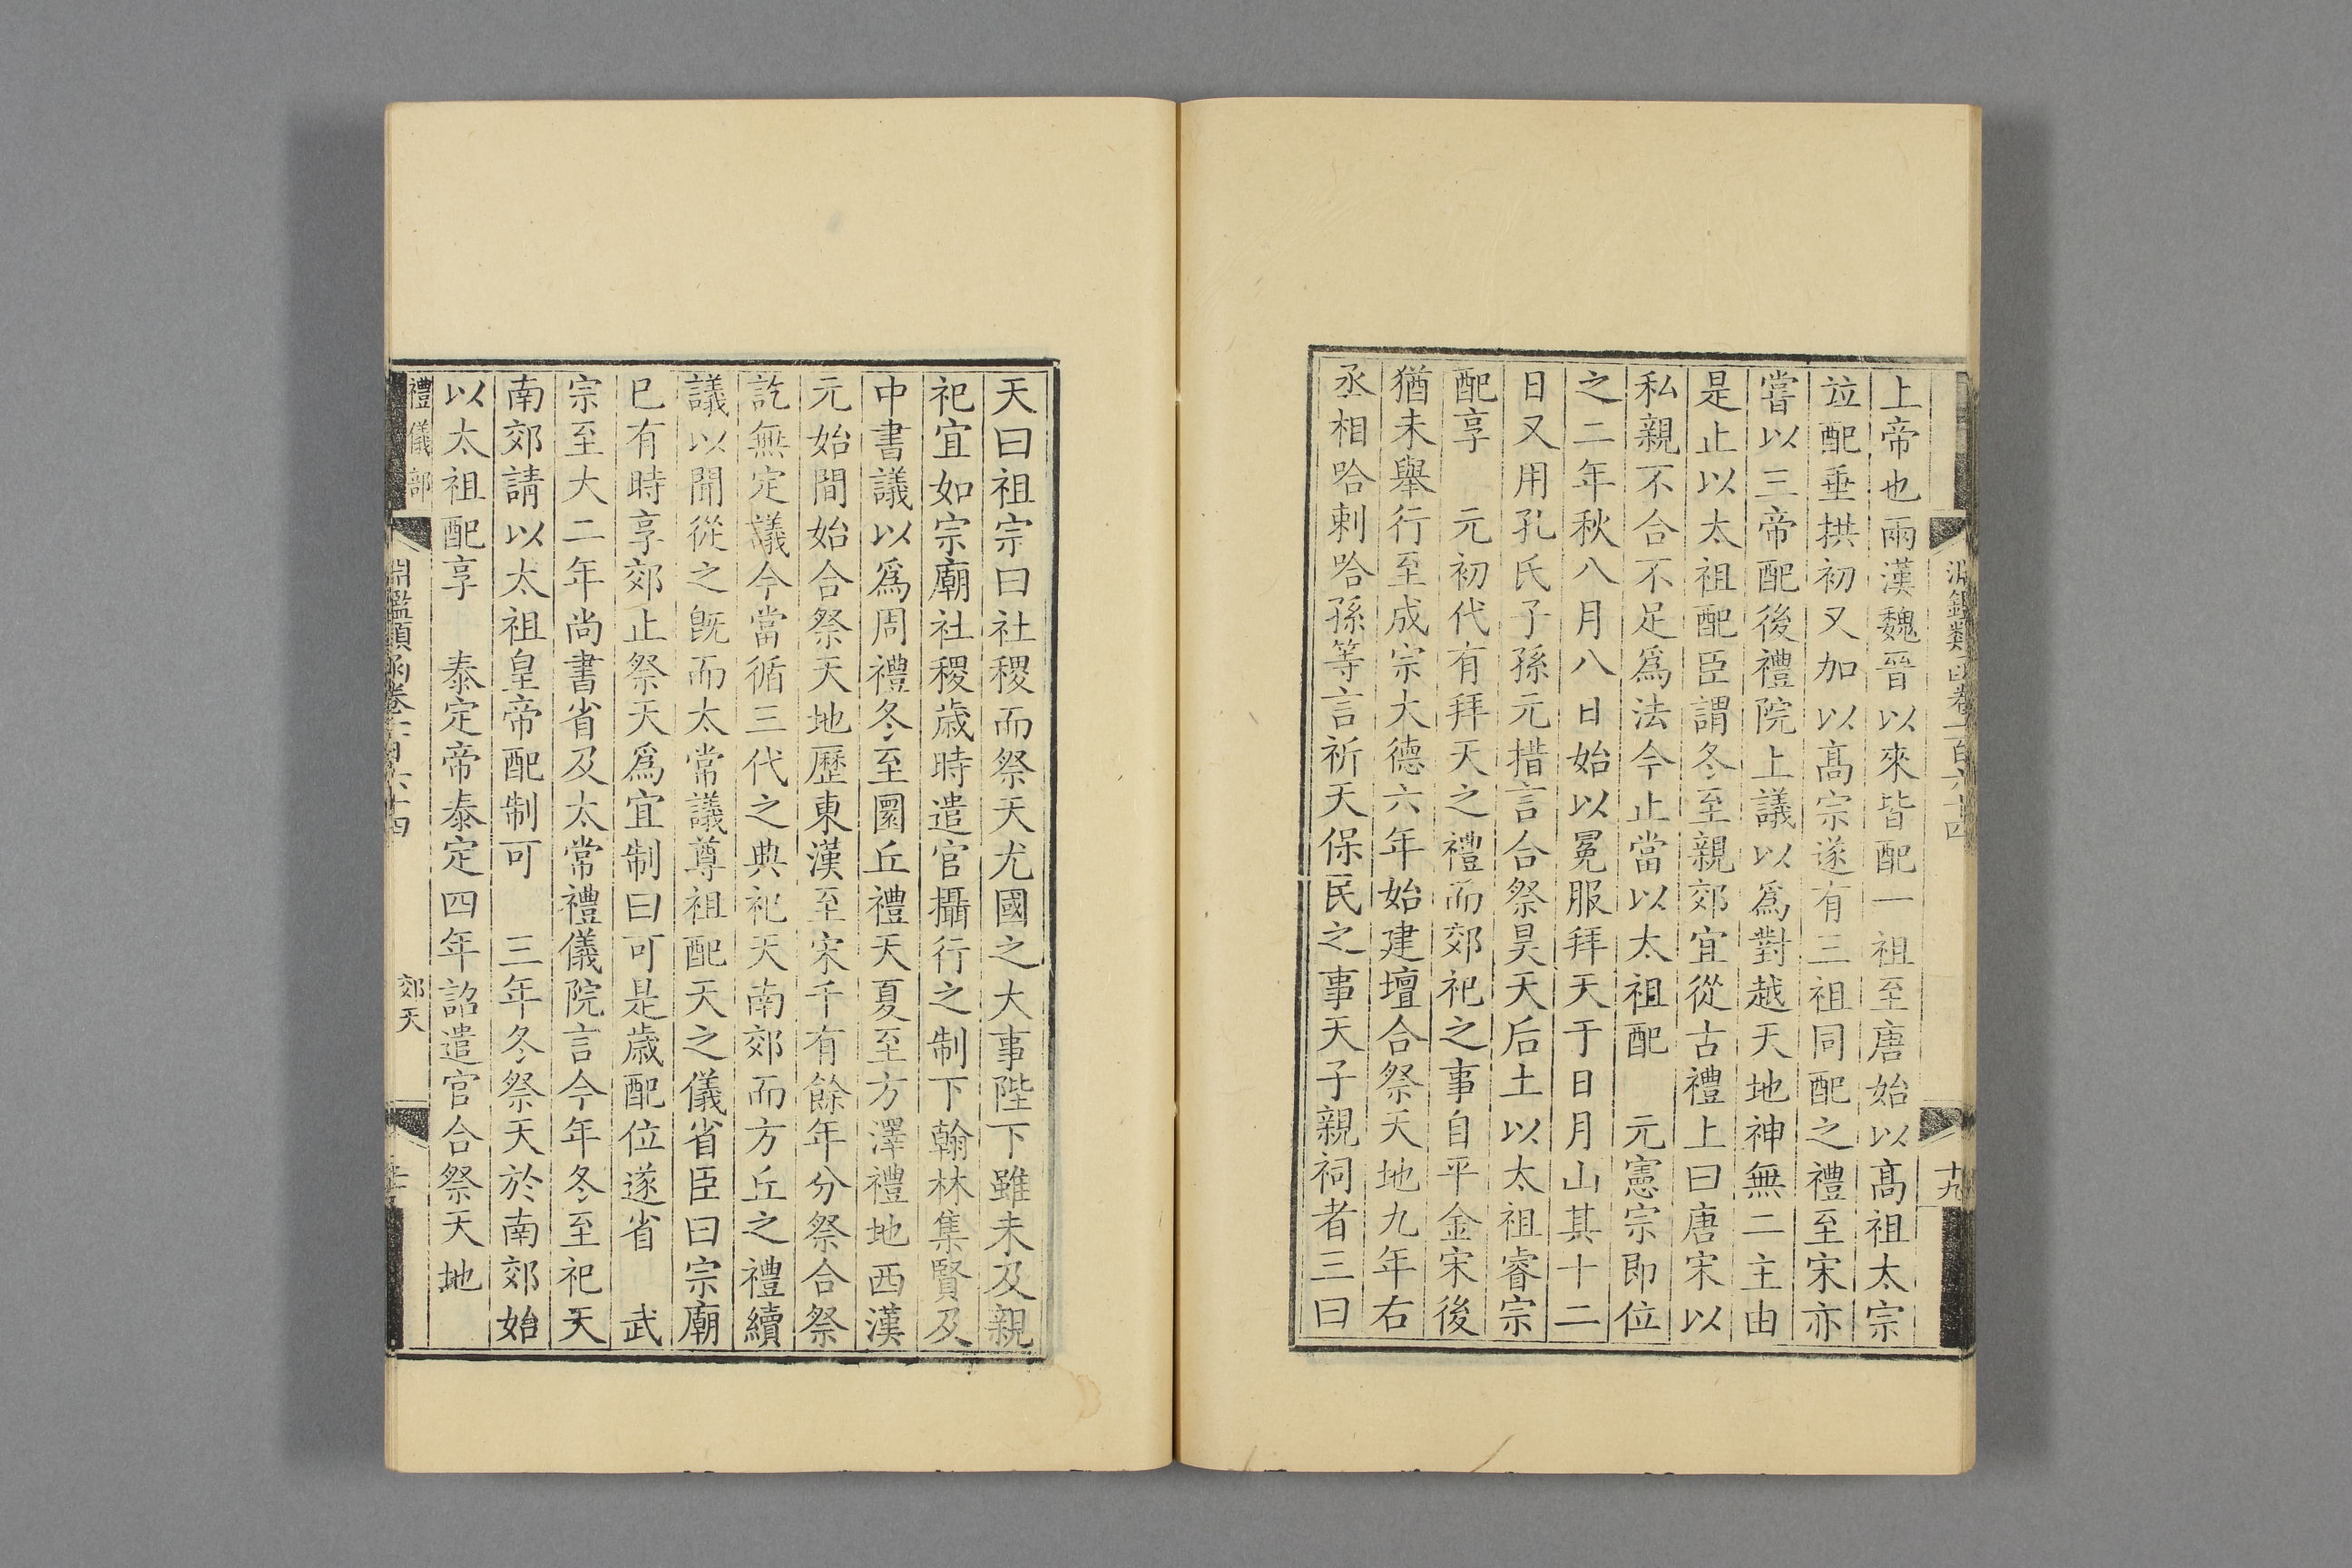 上帝也兩漢魏晉以來皆配一祖至唐始以髙祖太宗
竝配垂拱初又加以髙宗遂有三祖同配之禮至宋亦
嘗以三帝配後禮院上議以爲對越天地神無二主由
是止以太祖配臣謂冬至親郊宜從古禮上曰唐宋以
私親不合不足爲法今止當以太祖配　元憲宗即位
之二年秋八月八日始以冕服拜天于日月山其十二
日又用孔氏子孫元措言合祭昊天后土以太祖睿宗
配享　元初代有拜天之禮而郊祀之事自平金宋後
猶未舉行至成宗大德六年始建壇合祭天地九年右
丞相哈剌哈孫等言祈天保民之事天子親祠者三曰
十九
天曰祖宗曰社稷而祭天尤國之大事陛下雖未及親
祀宜如宗廟社稷歳時遣官攝行之制下翰林集賢及
中書議以爲周禮冬至圜丘禮天夏至方澤禮地西漢
元始間始合祭天地歷東漢至宋千有餘年分祭合祭
訖無定議今當循三代之典祀天南郊而方丘之禮續
議以聞從之旣而太常議尊祖配天之儀省臣曰宗廟
已有時享郊止祭天爲宜制曰可是歳配位遂省　武
宗至大二年尚書省及太常禮儀院言今年冬至祀天
南郊請以太祖皇帝配制可　三年冬祭天於南郊始
以太祖配享　泰定帝泰定四年詔遣官合祭天地
禮儀部
郊天